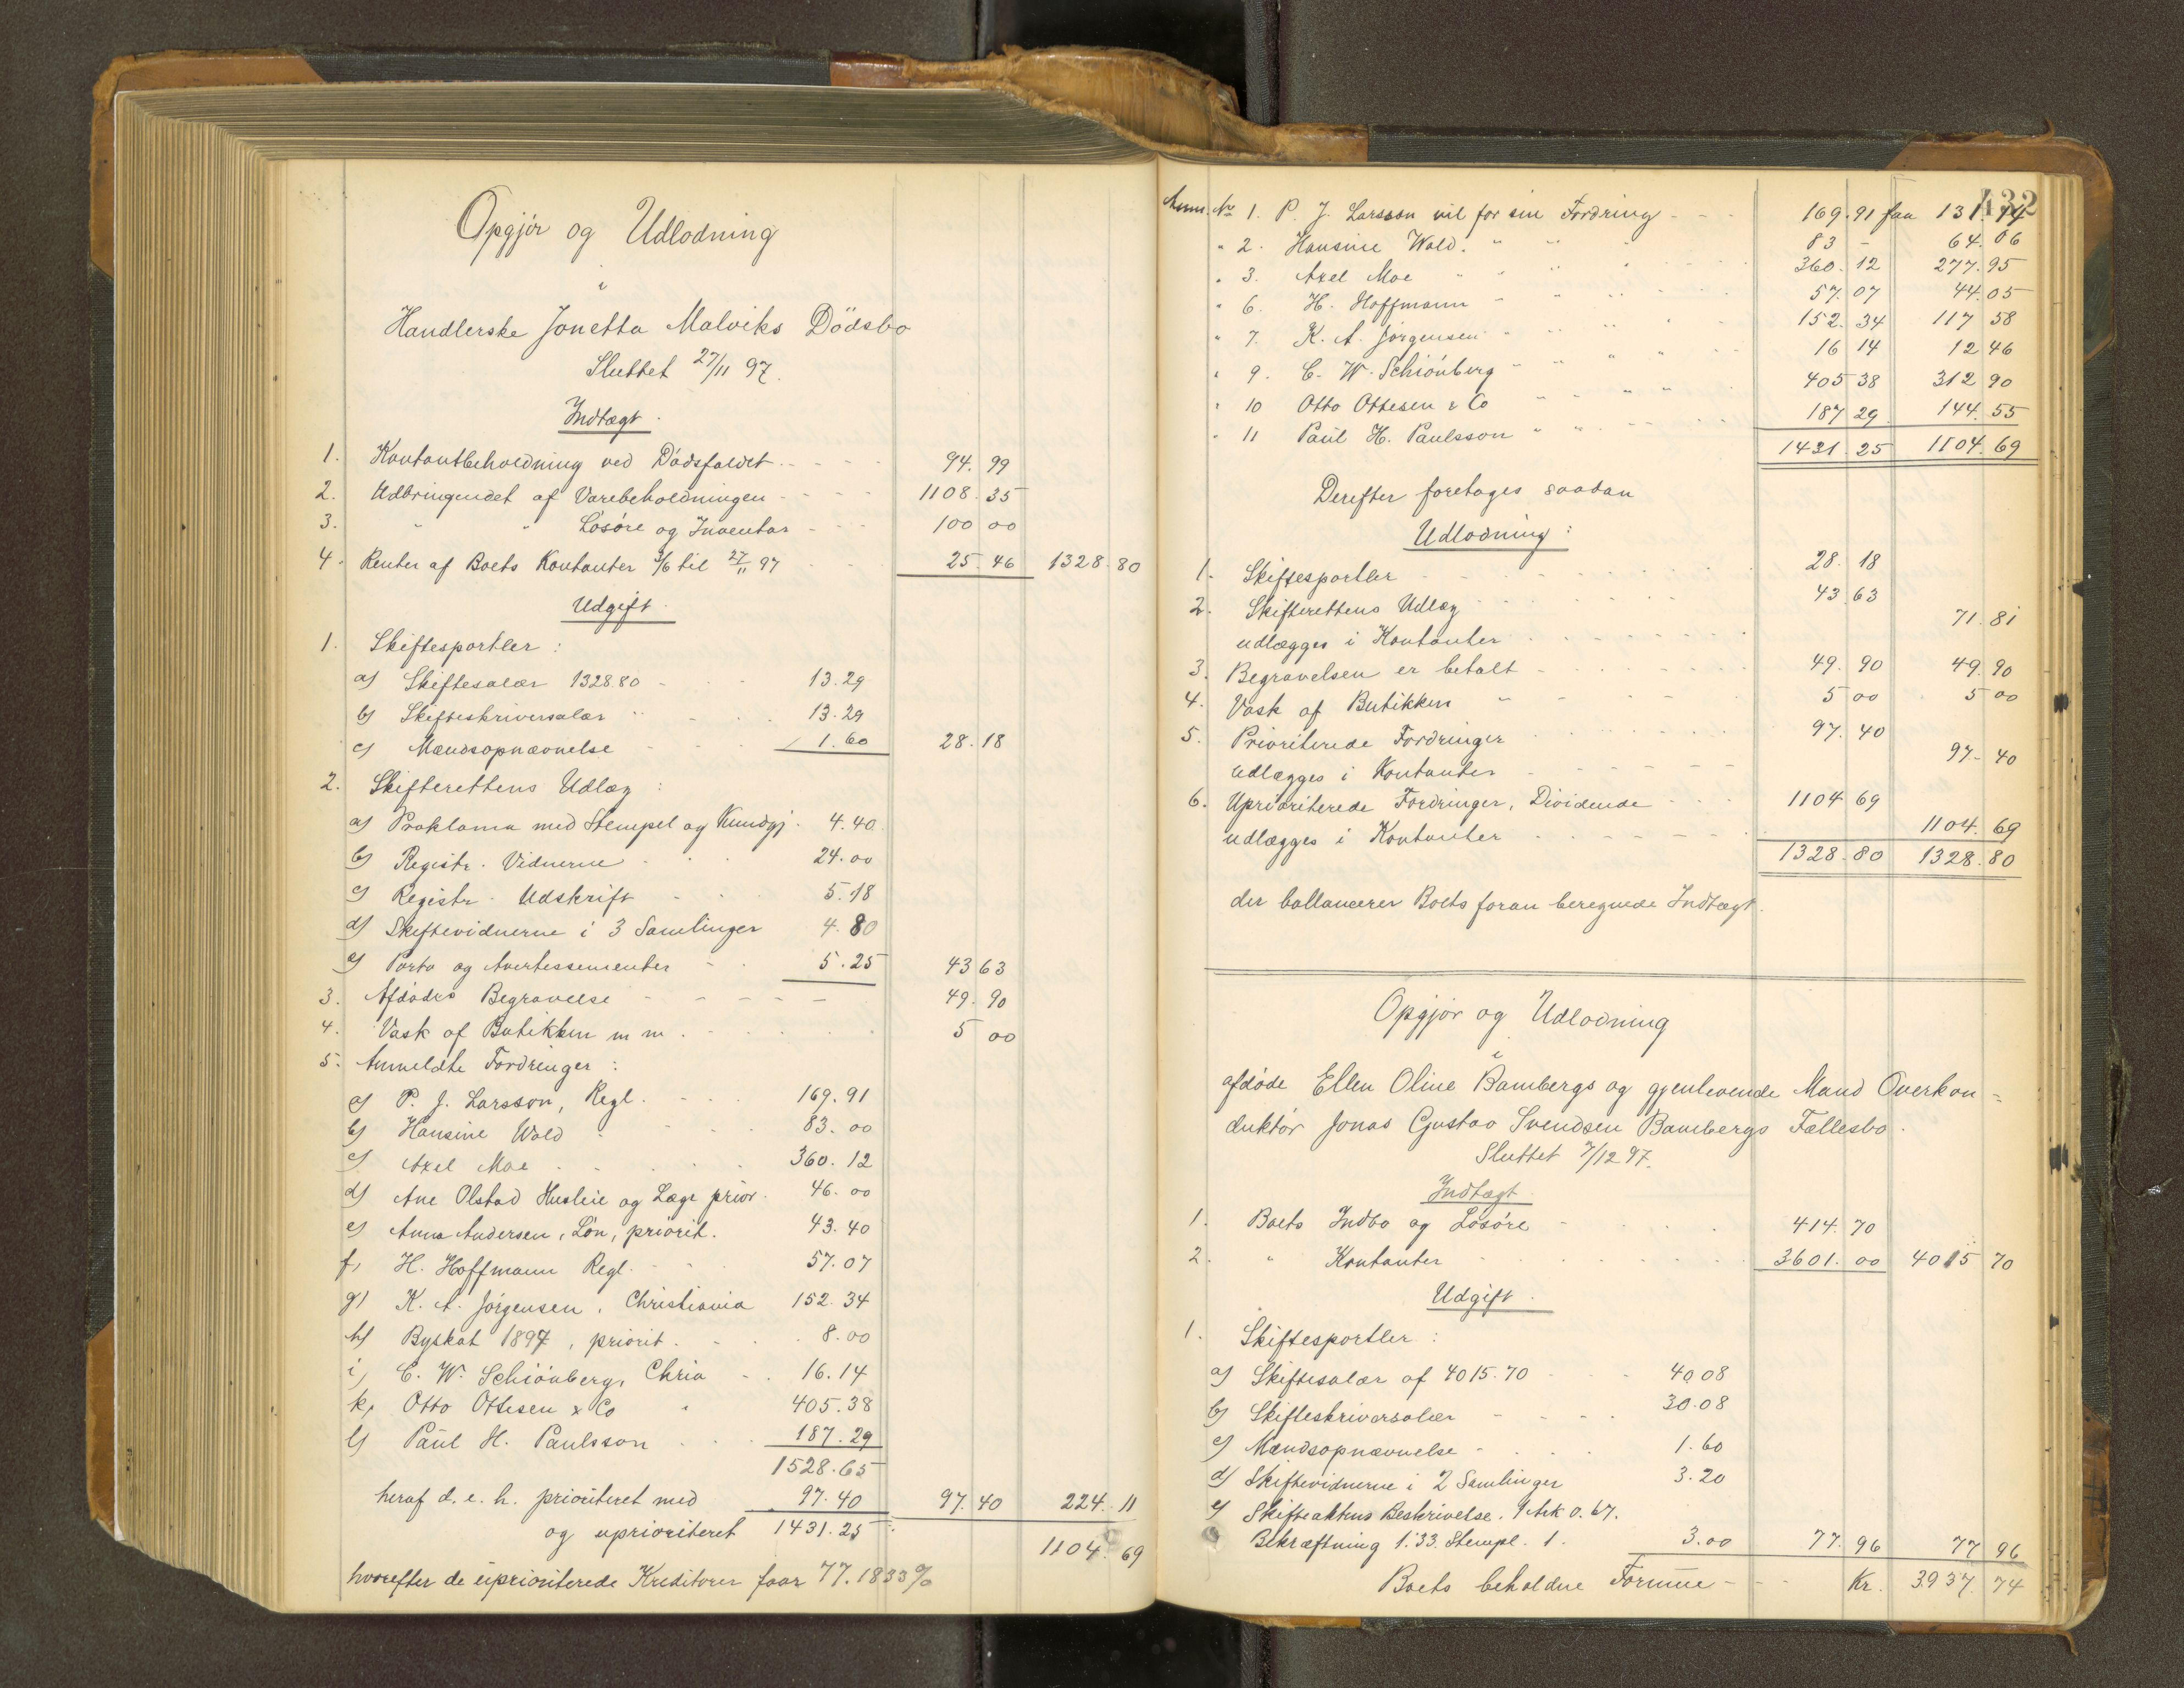 Opgjör og Udlodning
i
Handlerske Jonetta Malviks Dödsbo
Sluttet 27/11 97.
Indtægt.
1. Kontantbeholdning ved Dödsfaldet 94.99
2. Udbringendet af Varebeholdningen 1108.35
3. " " Lösöre og Inventar 100 00
4. Renter af Boets Kontanter 3/6 til 27/11 97 25.46 1328.80
Udgift.
1. Skiftesportler:
a) Skiftesalær 1328.80 13.29
b) Skifteskriversalær " 13.29
c) Mændsopnævnelse 1.60 28.18
2. Skifterettens Udlæg:
a) Proklama med Stempel og Kundgj. 4.40
b) Registr. Vidnerne 24.00
c) Registr. Udskrift 5.18
d) Skiftevidnerne i 3 Samlinger 4.80
e) Porto og Avertissementer 5.25 43 63
3. Afdödes Begravelse 49.90
4. Vask af Butikken m m. 5 00
5. Anmeldte Fordringer:
a) P. J. Larsson, Regl. 169.91
b) Hansine Wold 83.00
c) Axel Moe 360.12
d) Ane Olstad Husleie og Læge prior. 46.00
e) Anna Andersen, Lön, priorit. 43.40
f, H. Hoffmann Regl. 57.07
g) K. A. Jörgensen, Christiania 152.34
h) Byskat 1897, priorit. 8.00
i) C. W. Schiönberg, Chria 16.14
k, Otto Ottesen & Co " 405.38
l) Paul H. Paulsson 187.29
1528.65
heraf d. e. h. prioriteret med 97.40 97.40 224.11
og uprioriteret 1431.25 1104.69
hvorefter de uprioriterede Kreditorer faar 77.1833%
132
Anm. No 1. P. J. Larsson vil for sin Fordring 169.91 faa 131.14
" 2. Hansine Wold. " " " 83 - 64.06
" 3. Axel Moe " " " 360.12 277.95
" 6. H. Hoffmann " " " 57.07 44.05
" 7. K. A. Jörgensen " " " 152.34 117 58
" 9. C. W. Schiönberg " " " 16 14 12 46
" 10 Otto Ottesen & Co " " " 405 38 312 90
" 11 Paul H. Paulsson " " 187 29 144.55
1431.25 1104.69
Derefter foretages saadan
Udlodning:
1. Skiftesportler 28.18
2. Skifterettens Udlæg 43.63
udlægges i Kontanter 71.81
3. Begravelsen er betalt 49.90 49.90
4. Vask af Butikken " 5 00 5 00
5. Prioriterede Fordringer 97.40
udlægges i Kontanter 97.40
6. Uprioriterede Fordringer, Dividende 1104 69
udlægges i Kontanter 1104.69
1328.80 1328.80
der ballancerer Boets foran beregnede Indtægt.
Opgjör og Udlodning
i
afdöde Ellen Oline Bambergs og gjenlevende Mand Overkon=
duktör Jonas Gustav Svendsen Bambergs Fællesbo.
Sluttet 7/12 97.
Indtægt.
1. Boets Indbo og Lösöre 414.70
2. " Kontanter 3601.00 4015 70
Udgift.
1. Skiftesportler:
a) Skiftesalær af 4015.70 40.08
b) Skifteskriversalær 30.08
c) Mændsopnævnelse 1.60
d) Skiftevidnerne i 2 Samlinger 3.20
e) Skifteaktens Beskrivelse. 1 Ark 0.67.
Bekræftning 1.33. Stempl. 1. 3.00 77.96 77 96
Boets beholdne Formue Kr. 3937.74